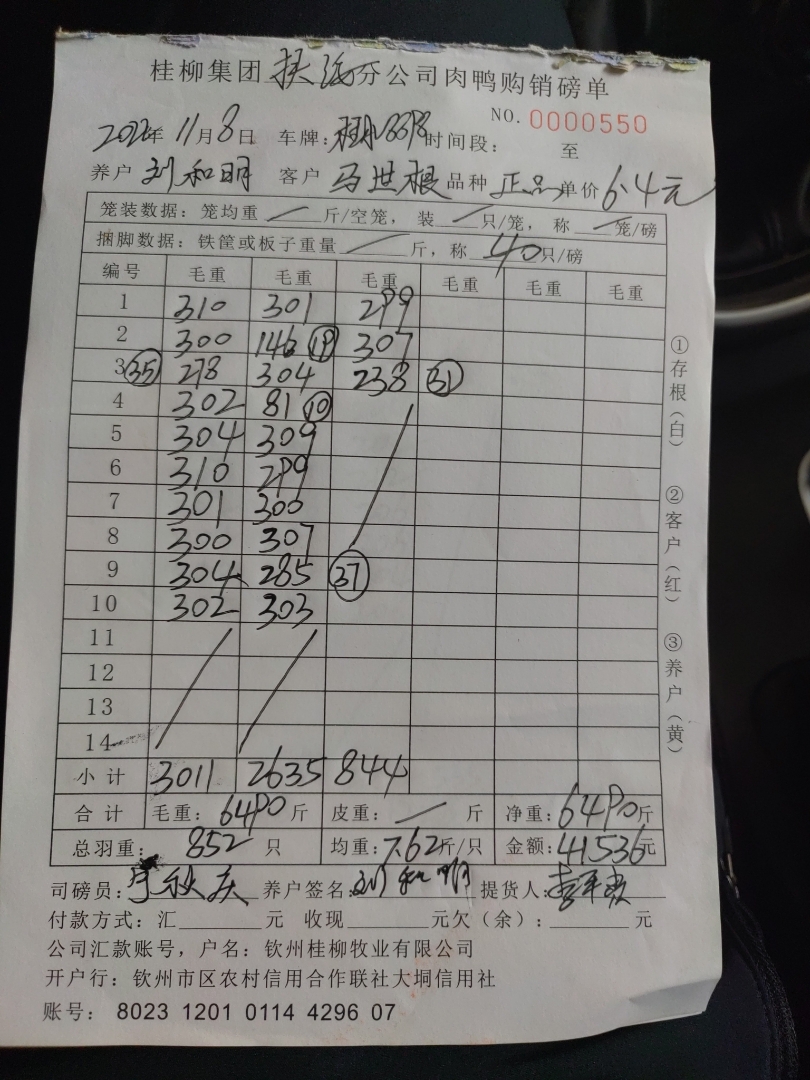 桂柳集团扶绥分公司肉鸭购销磅单
NO. 0000550
11月8日 车牌: 时间段: 至
养户 刘和明 客户 马世根 品种 正品 单价 6.4元
笼装数据：笼均重 / 斤/空笼，装 / 只/笼，称 / 笼/磅
捆脚数据：铁筐或板子重量 / 斤，称 40 只/磅
编号 毛重 毛重 毛重 毛重 毛重 毛重
1 310 301 299
2 300 146 ⑲ 307
3 ㉟ 278 304 238 ㉛
4 302 81 ⑩
5 304 309
6 310 299
7 301 300
8 300 307
9 304 285 ㊲
10 302 303
11
12
13
14
小计 3011 2635 844
合计 毛重: 6490 斤 皮重: / 斤 净重: 6490斤
总羽重: 852 只 均重: 7.62斤/只 金额: 41536元
司磅员: 李秋庆 养户签名: 刘和明 提货人:
付款方式: 汇 元 收现 元欠（余）: 元
公司汇款账号，户名：钦州桂柳牧业有限公司
开户行：钦州市区农村信用合作联社大垌信用社
账号： 8023 1201 0114 4296 07
①存根（白）
②客户（红）
③养户（黄）